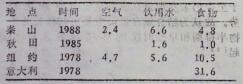 地 点 时间 空气 饮用水 食物
泰 山 1988 2,4 6.6 4.8
秋 田 1985 1.6 1.0
纽 约 1978 4,7 5.6 10.5
意大利 1978 31.6